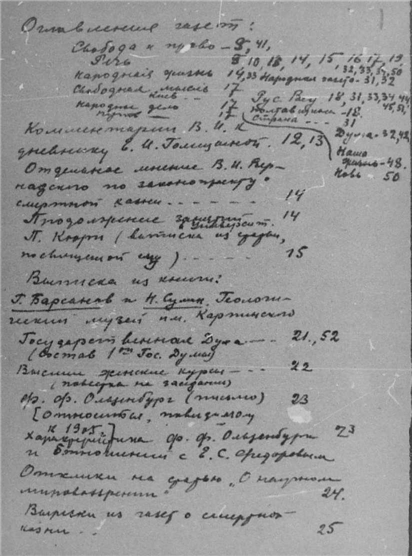 Оглавление газет:
Свобода и право — 9, 41,
Речь 9 10, 13, 14, 15 16, 17, 19,
Народная жизнь 14, 33 Народная газета - 31, 32
Свободная мысль 17
Киев...
Народное дело 17 Рус. Вед 18, 31, 33, 34 44
17 Полтавщина - 18.
Страна - - - 31
Дума - 32, 42,
Наша
жизнь - 48.
Новь 50
Комментарии В. И. к
дневнику Е. И. Голицыной. 12, 13
Отдельное мнение В. И. Вер-
надского по законопроекту о
смертной казни - - - - - - 14
Продолжение занятий 14
в университ.
П. Кюри (выписка из статьи,
посвященной ему) - - - - - 15
Выписка из книги:
Г. Барсанов и Н. Сумин. Геологи-
ческий музей им. Карпинского
Государственная Дума - - - 21, 52
(состав 1ой Гос. Думы)
Высшие женские курсы - - - 22
(повестка на заседание)
Ф. Ф. Ольденбург (письмо) 23
[относиться, повидимому
к 1905]
Характеристика Ф. Ф. Ольденбурга 23
и отношений с Е. С. Федоровым
Отклики на статью „О научном
мировоззрении" 24.
Вырезки из газет о смертной
казни - - 25